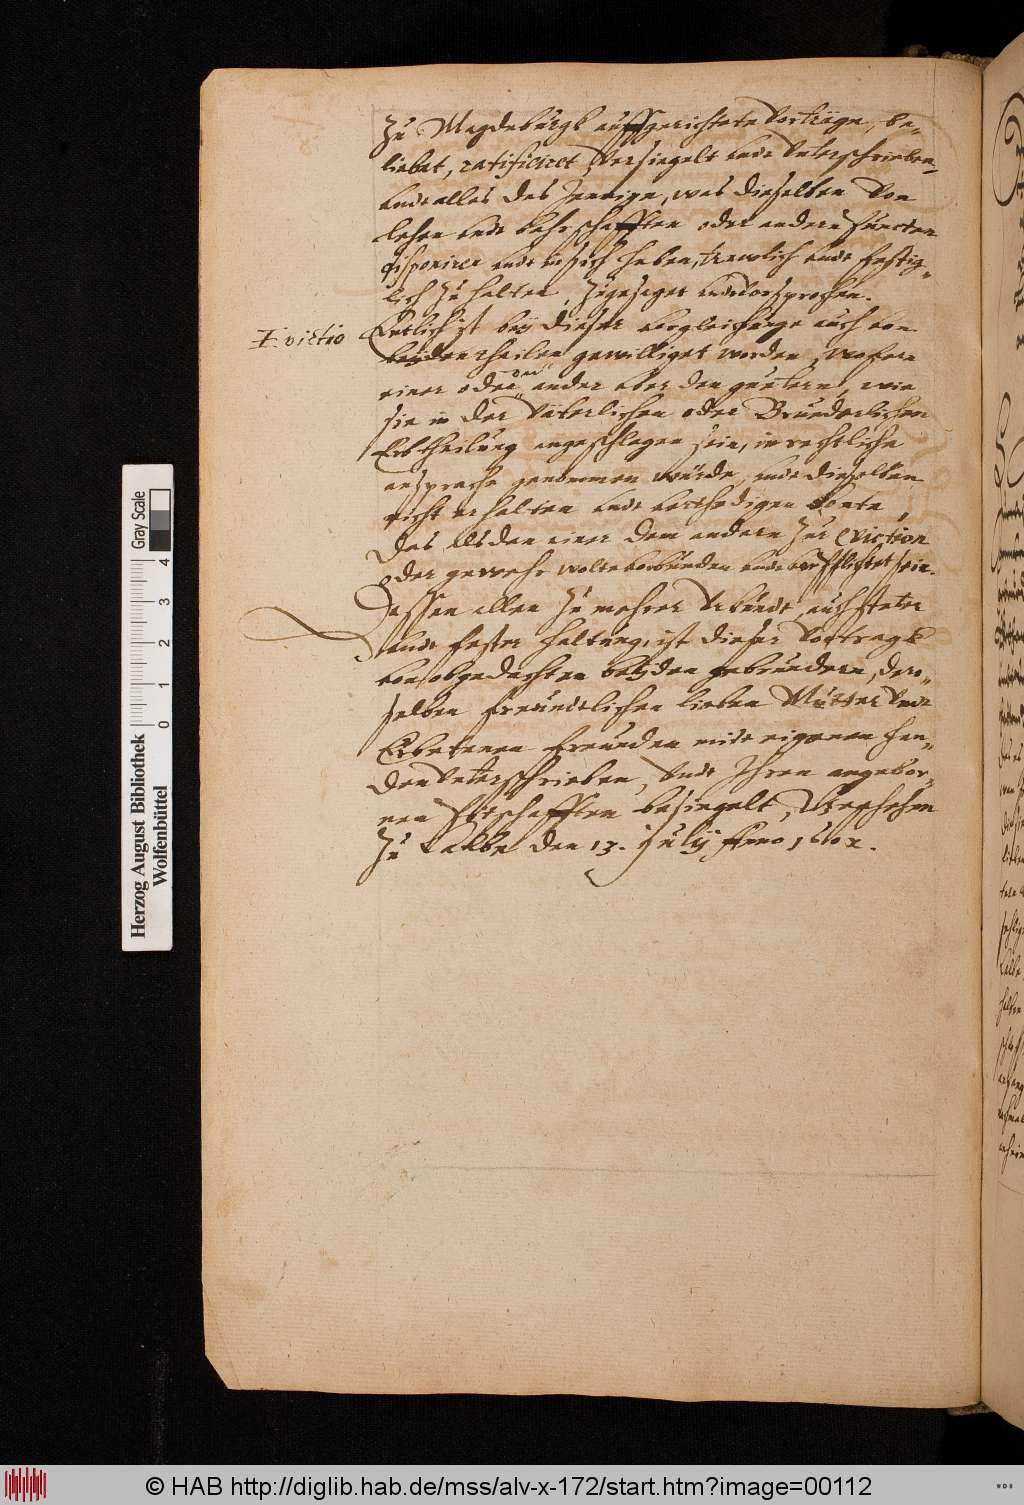 Zu Magdeburgk auffgerichtete Vorträge, be-
liebet, ratificiret, Versiegelt undt Unterschrieben,
undt alles das Jennige, was dieselben Von
lehen undt bahrschafften oder andern Puncten
disponiren undt in sich haben, trewlich undt festig-
lich zu halten, zugesaget undt vorsprochen.
Evictio
Entlich ist beÿ dieser vergleichunge auch von
beÿden theilen gewilliget worden, wofern
einer oder der ander uber den guetern, wie
sie in der Väterlichen oder Bruederlichen
Erbtheilung angeschlagen sein, in rechtliche
ansprache genommen würde, undt dieselben
nicht erhalten undt verthedigen konte,
Das alsdan einer dem andern zur Eviction
oder gewehr wolte vorbunden undt verpflichtet sein.
Dessen allen zu mehrer Urkundt, auch steter
undt fester haltung, ist dieser Vortragk
von obgedachten beÿden gebruedern, dero-
selben freundtlichen lieben Mutter Undt
Erbetenen freunden mitt eigenen hen-
den Unterschrieben, Undt Ihren angebor-
nen Pittschafften besiegelt, Geschehen
Zu Calbe den 13. Julÿ Anno
Herzog August Bibliothek
Wolfenbüttel
Gray Scale
0 1 2 3 4
© HAB http://diglib.hab.de/mss/alv-x-172/start.htm?image=00112